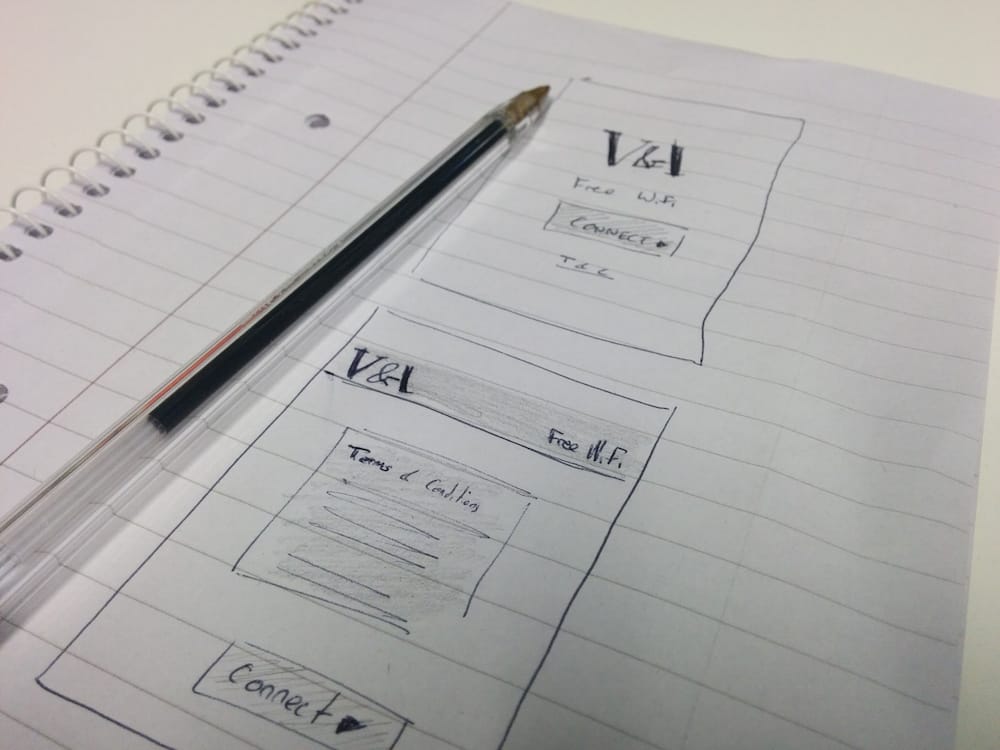 V&A
Free WiFi
CONNECT
T & C
V&A
Free WiFi
Terms & Conditions
Connect